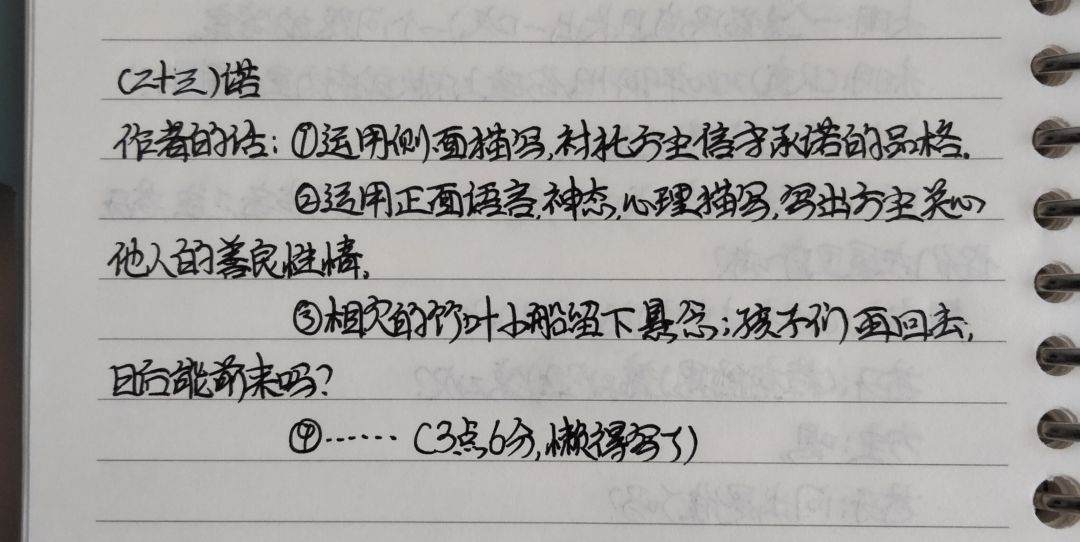 (二十三)诺
作者的话：①运用侧面描写,衬托方生信守承诺的品格.
②运用正面语言,神态,心理描写,写出方生关心
他人的善良性情.
③相灾的竹叶小船留下悬念：孩子们再回去,
日后能前来吗?
④…… (3点6分,懒得写了)